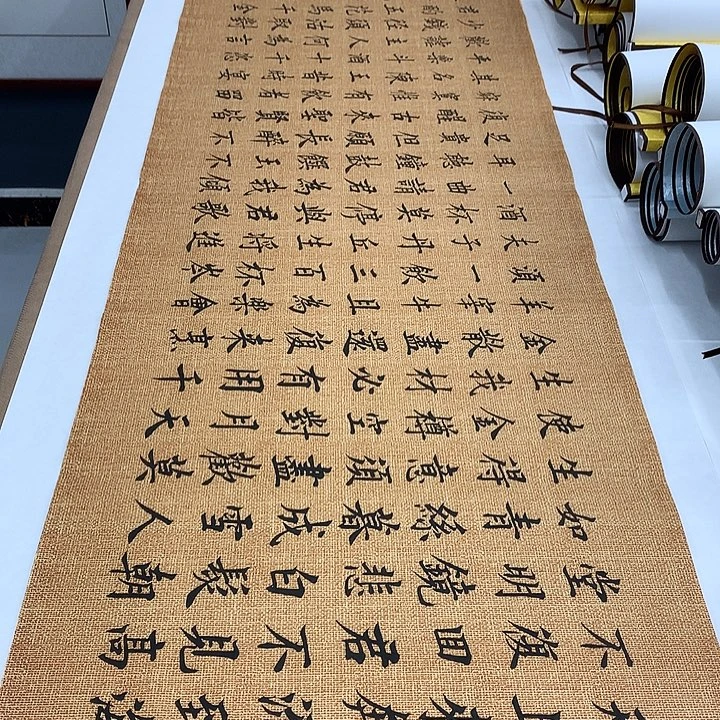 不復回君不見高
堂明鏡悲白髮朝
如青絲暮成雪人
生得意須盡歡莫
使金樽空對月天
生我材必有用千
金散盡還復來烹
羊宰牛且為樂會
須一飲三百杯岑
夫子丹丘生將進
酒杯莫停與君歌
一曲請君為我傾
耳聽鐘鼓饌玉不
足貴但願長醉不
復醒古來聖賢皆
寂寞惟有飲者留
其名陳王昔時宴
平樂斗酒十千恣
歡謔主人何為言
少錢徑須沽取對
君酌五花馬千金